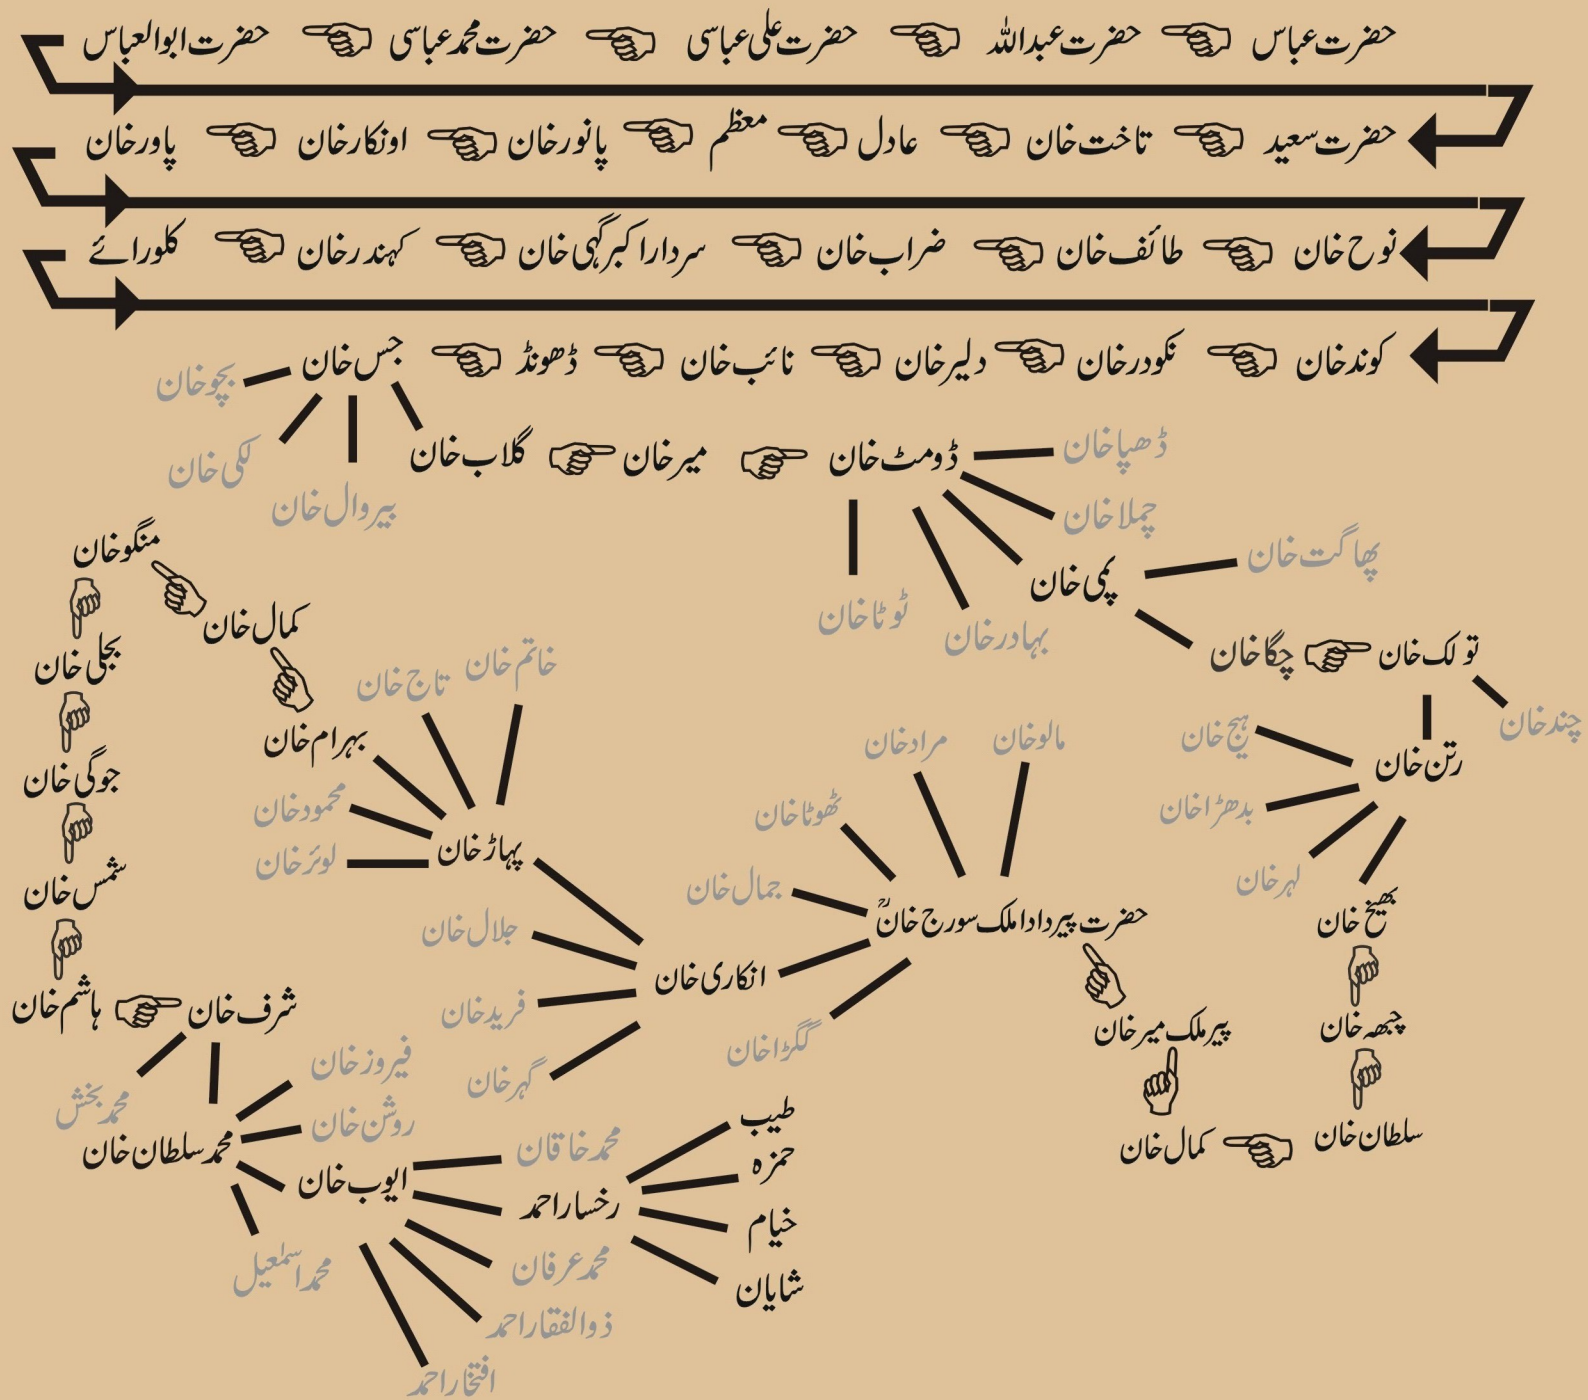 حضرت عباس حضرت عبداللہ حضرت علی عباسی حضرت محمد عباسی حضرت ابوالعباس
حضرت سعید تاخت خان عادل معظم پانور خان اونکار خان پاور خان
نوح خان طائف خان ضراب خان سردار اکبر گہی خان کہندر خان کلورائے
کوند خان نکودر خان دلیر خان نائب خان ڈھونڈ جس خان
بجو خان
لکی خان
بیروال خان
گلاب خان میر خان ڈومٹ خان
ڈھپا خان
چملا خان
پمی خان
بہادر خان
ٹوٹا خان
پھاگت خان
چگا خان تولک خان
چند خان
رتن خان
بدھڑا خان
لہر خان
بھیخ خان
چبھہ خان
سلطان خان کمال خان
پیر ملک میر خان
حضرت پیر دادا ملک سورج خانؒ
مالو خان
مراد خان
ٹھوٹا خان
جمال خان
گگڑا خان
انکاری خان
جلال خان
فرید خان
گہر خان
پہاڑ خان
خاتم خان
تاج خان
محمود خان
لوئر خان
بہرام خان
کمال خان
منگو خان
بجلی خان
جوگی خان
شمس خان
ہاشم خان شرف خان
محمد بخش
محمد سلطان خان
فیروز خان
روشن خان
محمد اسمٰعیل
ایوب خان
محمد خاقان
رخسار احمد
محمد عرفان
ذوالفقار احمد
افتخار احمد
طیب
حمزہ
خیام
شایان